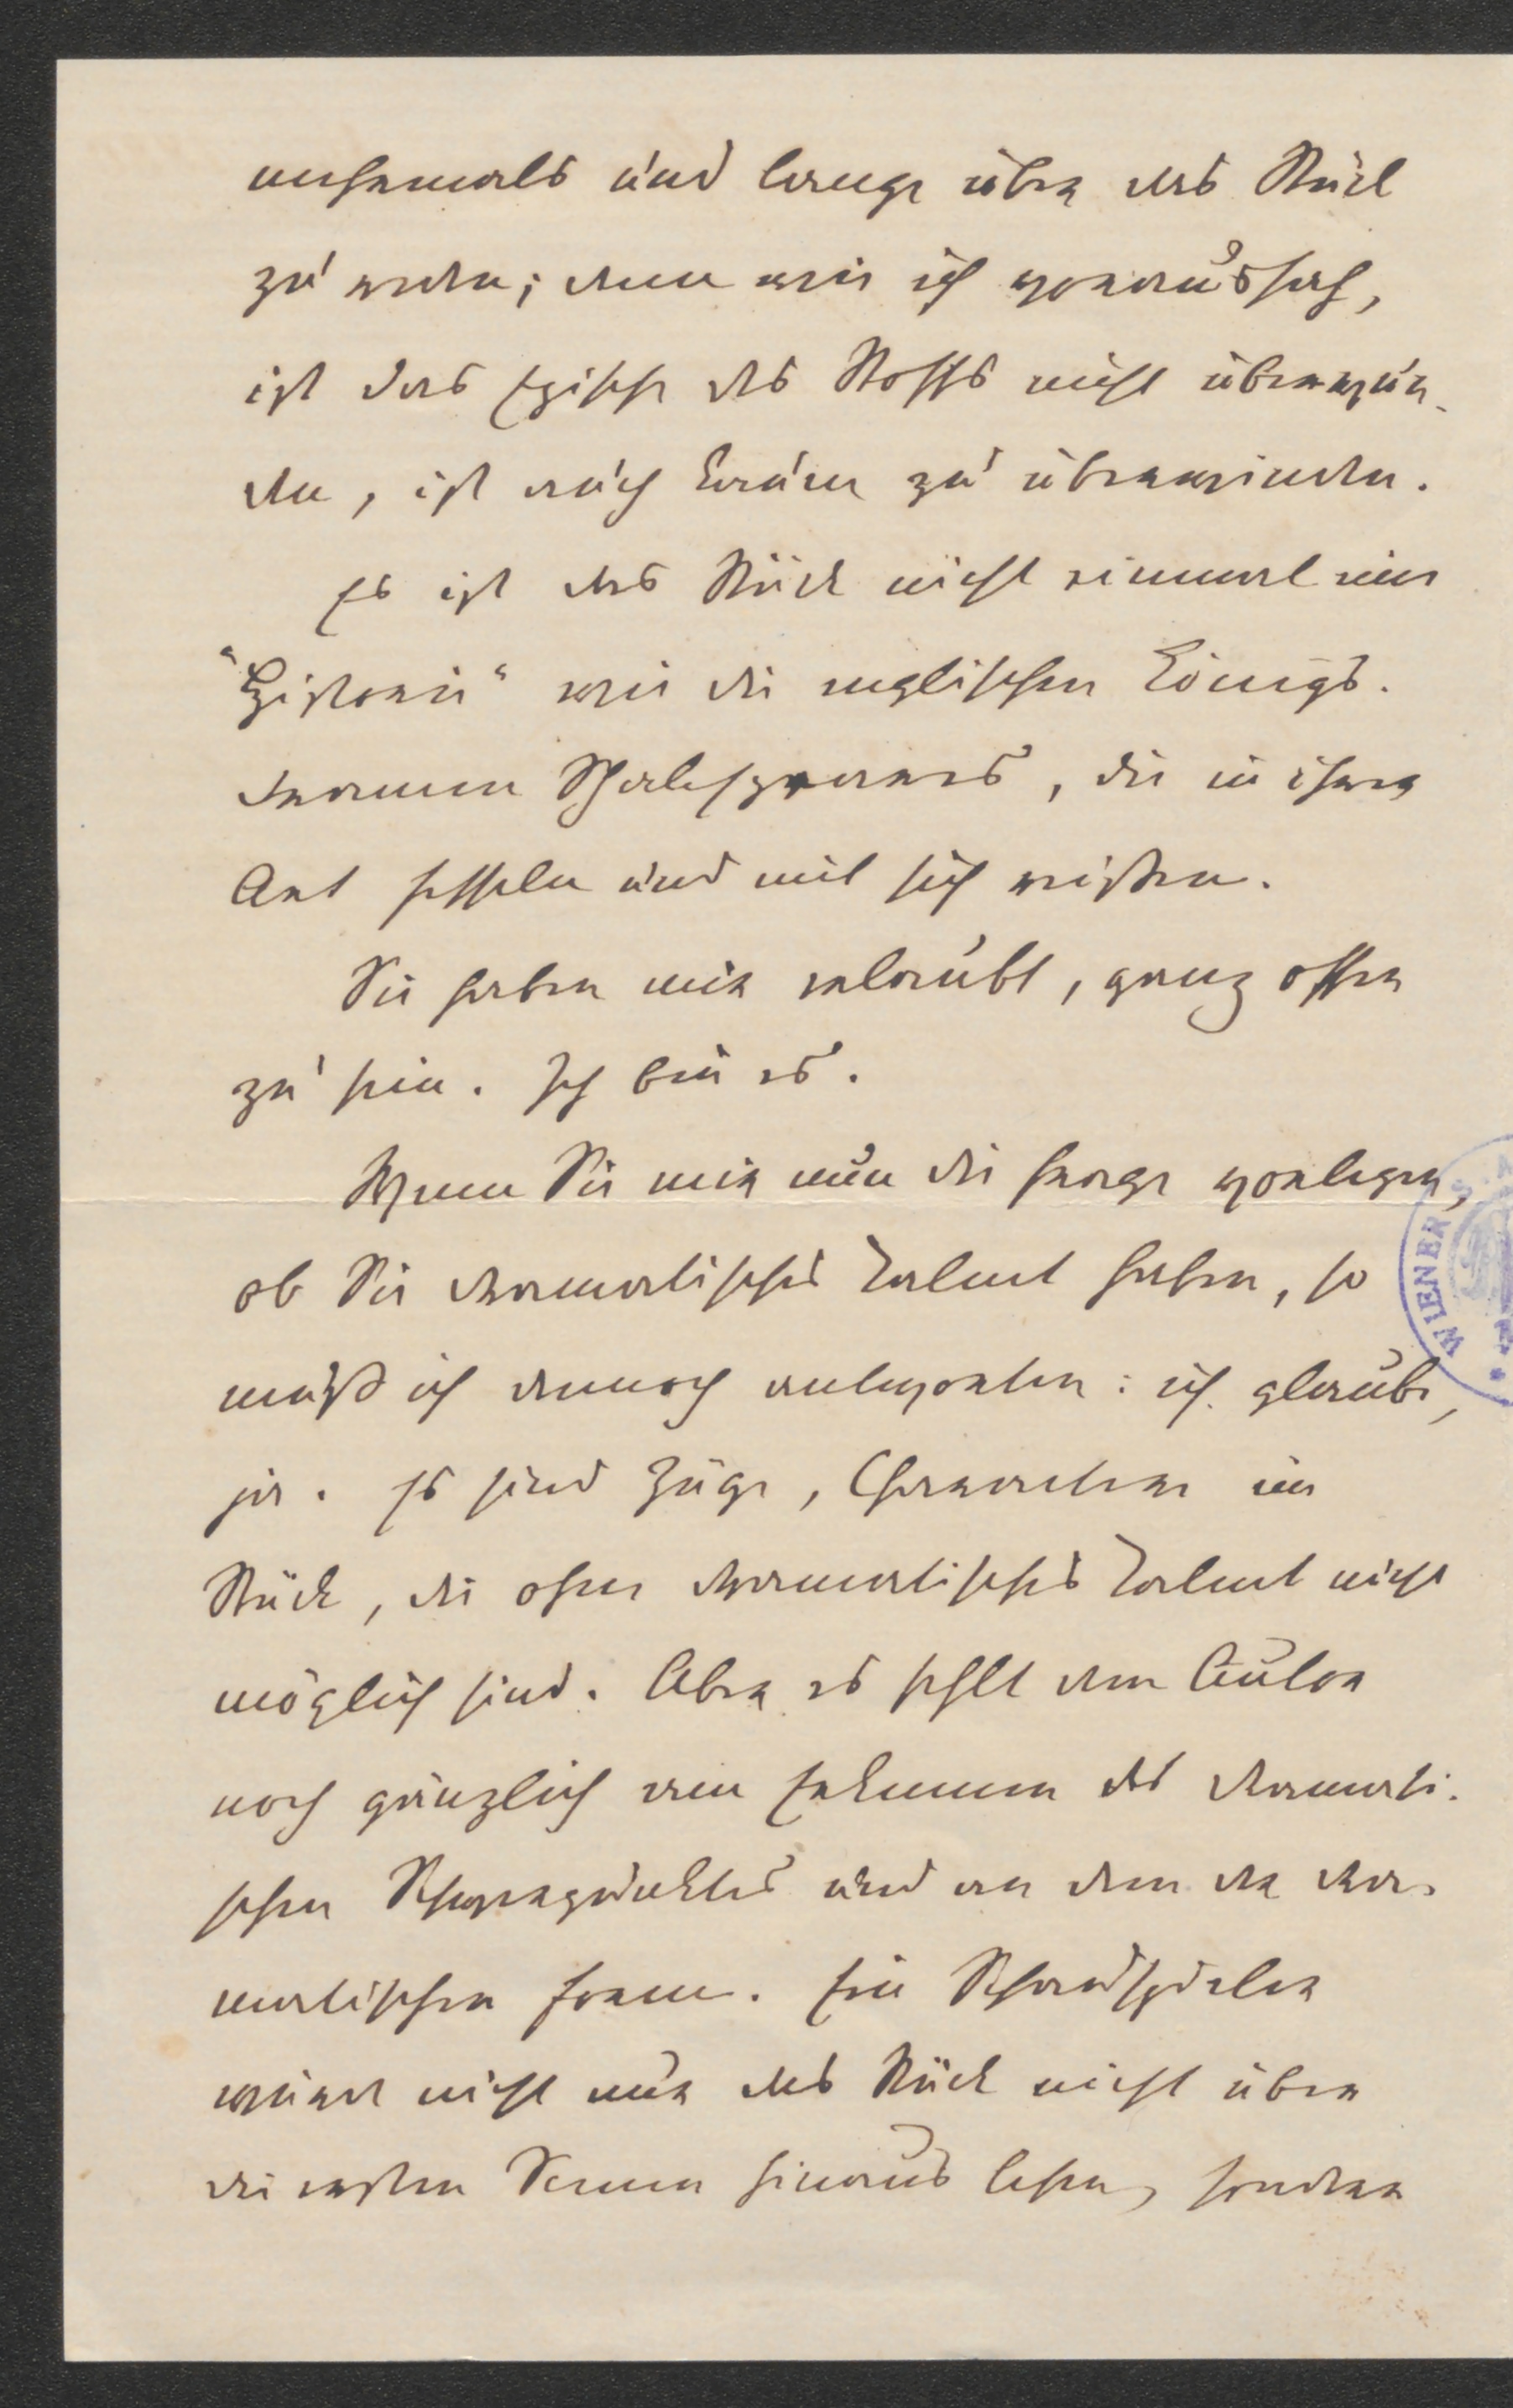 mehrmals und lange über das Stück
zu reden; denn wie ich voraussah,
ist das Epische des Stoffs nicht überwun-
den, ist auch kaum zu überwinden.
Es ist das Stück nicht einmal eine
"Historie" wie die englischen Königs-
dramen Shakespeares, die in ihrer
Art fesseln und mit sich reißen.
Sie haben mir erlaubt, ganz offen
zu sein. Ich bin es.
Wenn Sie mir nun die Frage vorlegen,
ob Sie dramatisches Talent haben, so
muß ich dennoch antworten: ich glaube,
ja. Es sind Züge, Charaktere im
Stück, die ohne dramatisches Talent nicht
möglich sind. Aber es fehlt dem Autor
noch gänzlich am Erkennen des dramati-
schen Schwerpunktes und an dem der dra-
matischen Form. Ein Schauspieler
würde nicht nur das Stück nicht über
die ersten Scenen hinaus lesen, sondern
WIENER